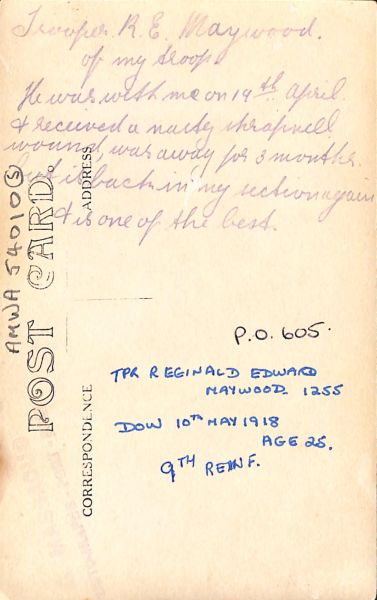 Trooper R. E. Maywood.
of my troop.
He was with me on 19th April
& received a nasty shrapnell
wound, was away for 3 months.
but is back in my section again
& is one of the best.
ADDRESS
AMWA 54010 (S)
POST CARD.
CORRESPONDENCE
P.O. 605.
TPR REGINALD EDWARD
MAYWOOD 1255
DOW 10TH MAY 1918
AGE 25.
9TH REINF.